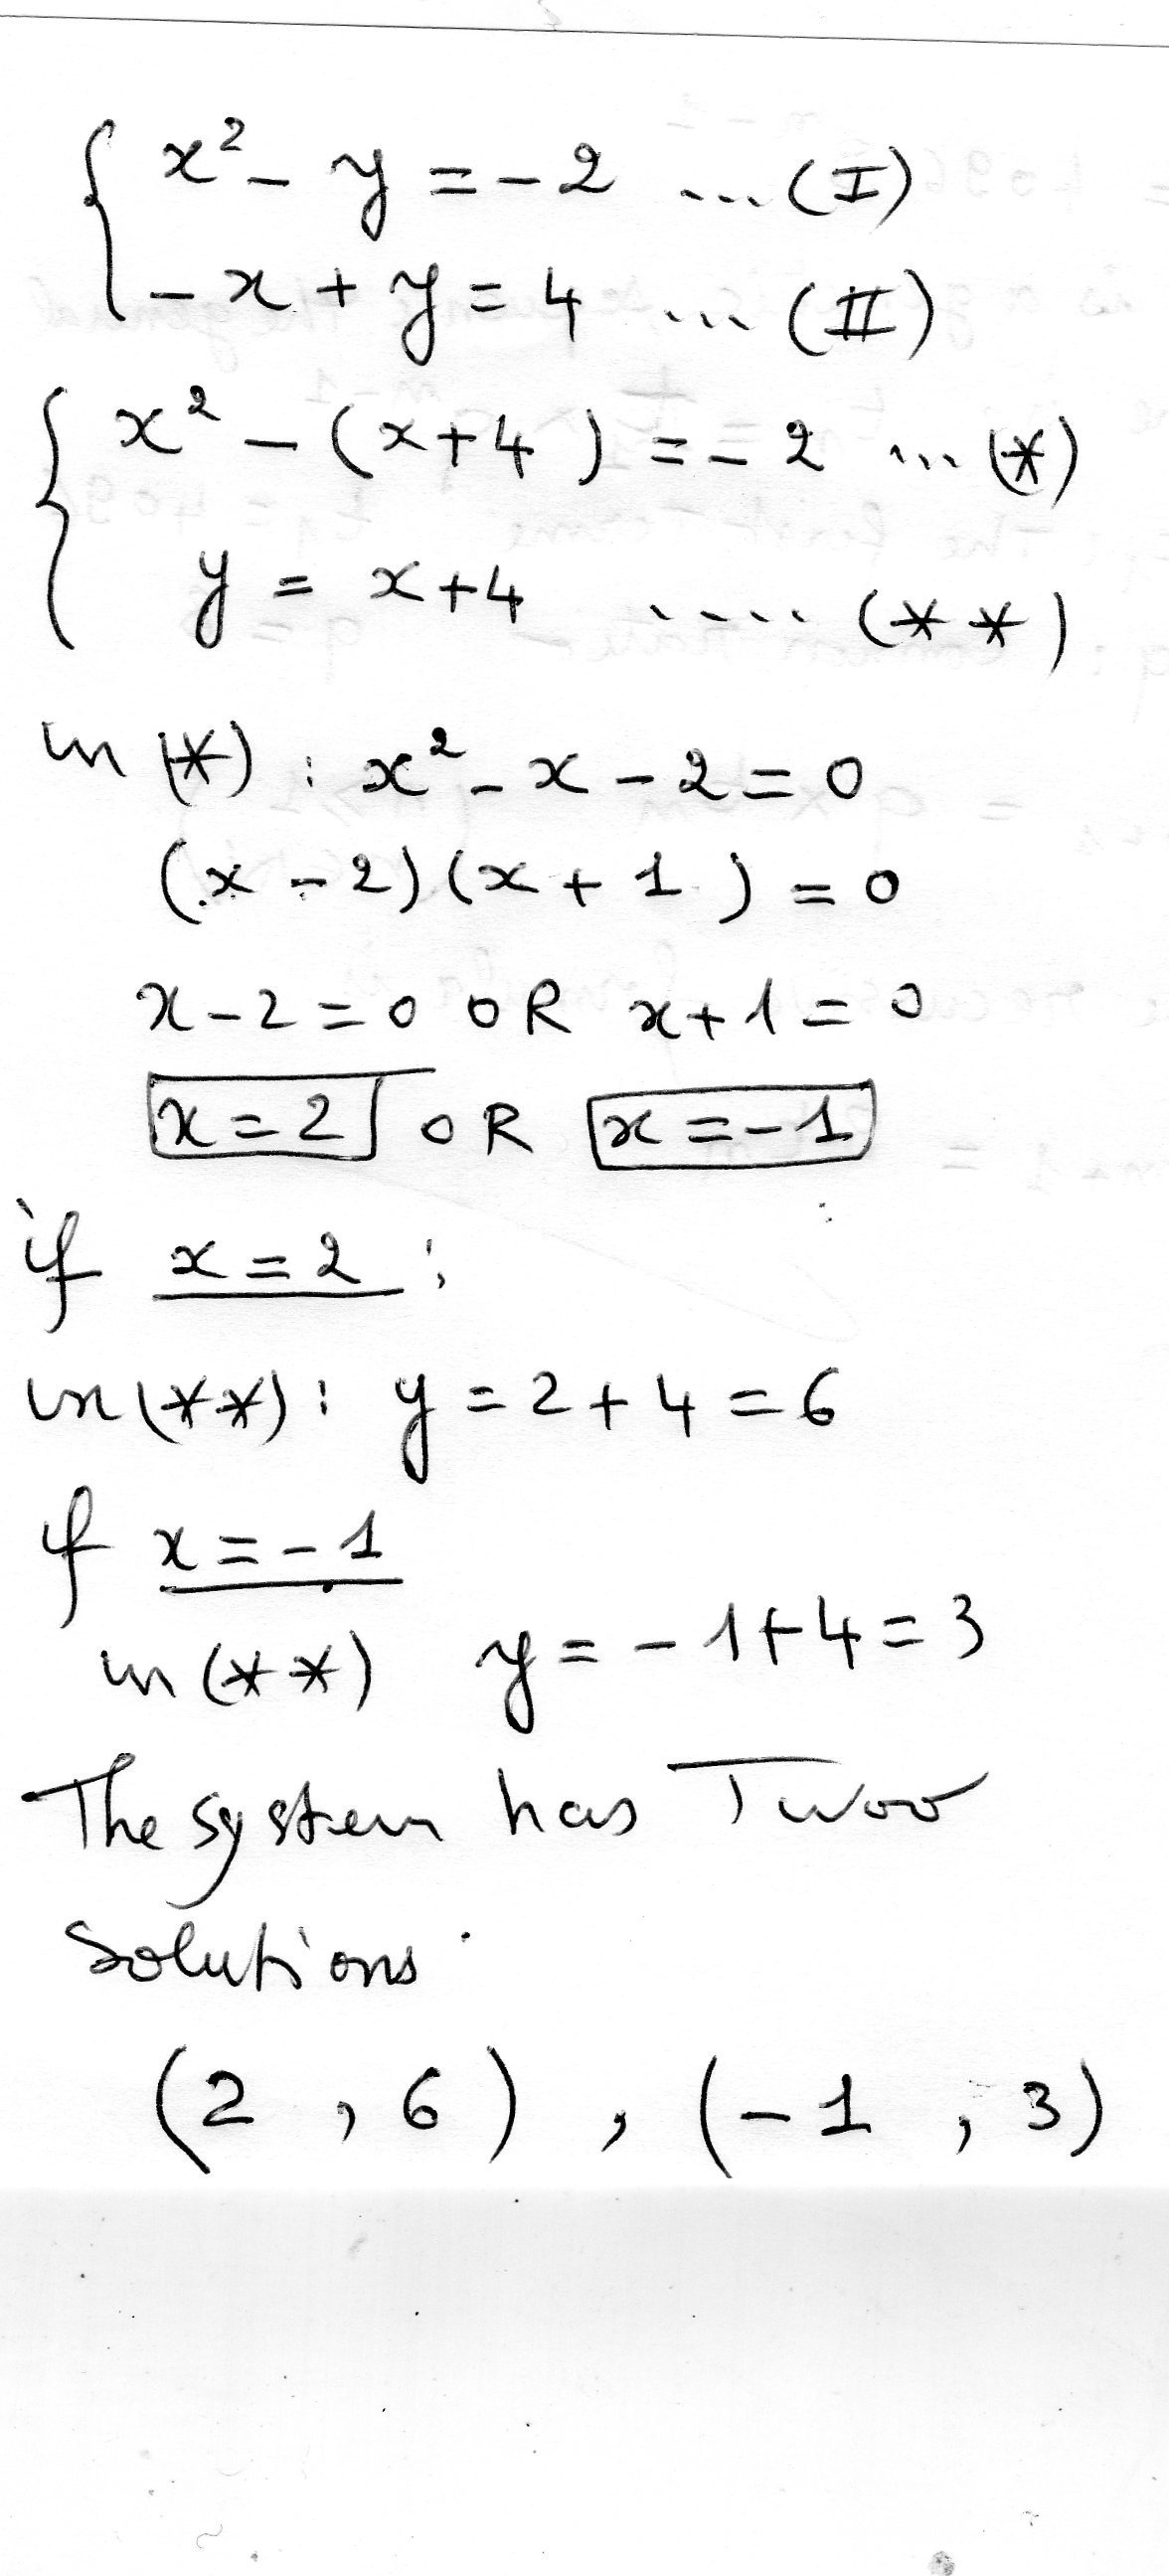 { x² - y = -2 ... (I)
- x + y = 4 ... (II)
{ x² - (x+4) = - 2 ... (*)
y = x+4 .... (**)
in (*) : x² - x - 2 = 0
(x - 2)(x + 1) = 0
x - 2 = 0 OR x + 1 = 0
x = 2 OR x = -1
if x = 2 :
in (**) : y = 2 + 4 = 6
if x = - 1
in (**) y = - 1 + 4 = 3
The system has Twoo
Solutions
(2 , 6) , (-1 , 3)